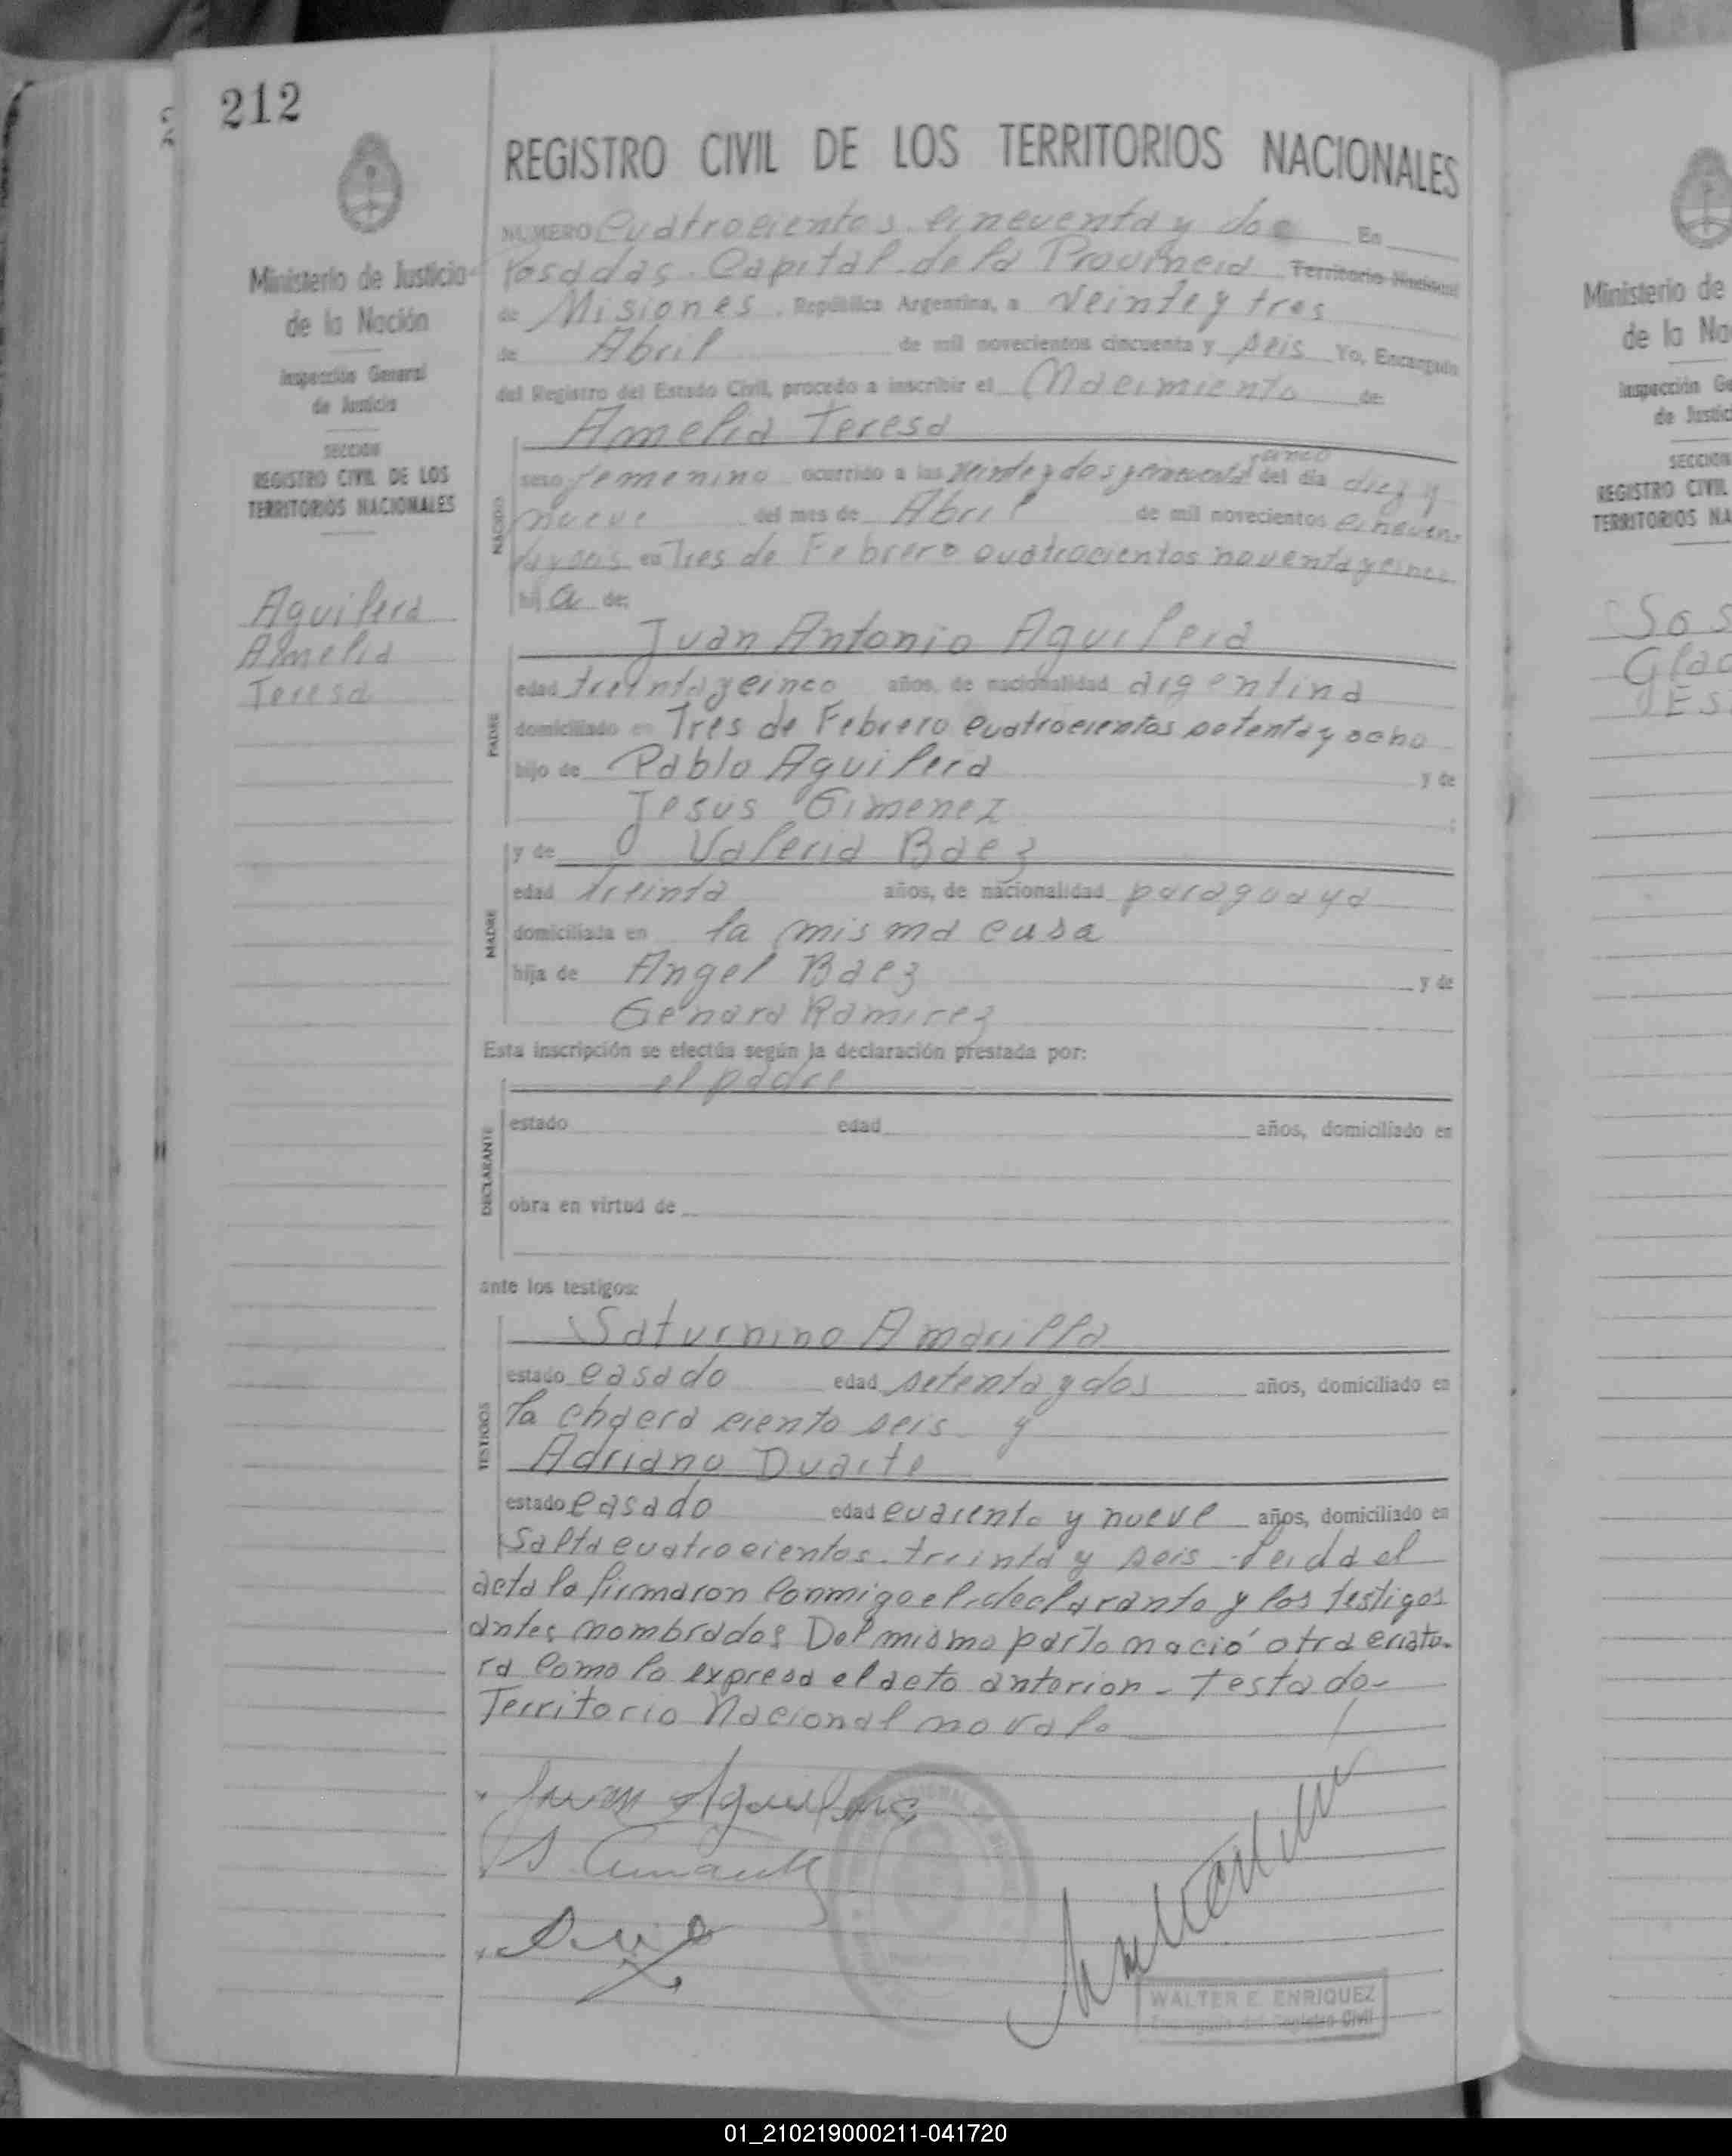 212
REGISTRO CIVIL DE LOS TERRITORIOS NACIONALES
Ministerio de Justicia
de la Nación
Inspección General
de Justicia
SECCION
REGISTRO CIVIL DE LOS
TERRITORIOS NACIONALES
Aguilera
Amelia
Teresa
NUMERO Cuatrocientos cincuenta y dos En
Posadas Capital de la Provincia Territorio Nacional
de Misiones. República Argentina, a veinte y tres
de Abril de mil novecientos cincuenta y seis Yo, Encargado
del Registro del Estado Civil, procedo a inscribir el Nacimiento de:
Amelia Teresa
NACIDO
cinco
sexo femenino ocurrido a las veinte y dos y cincuenta del día diez y
nueve del mes de Abril de mil novecientos cincuen
ta y seis en Tres de Febrero cuatrocientos noventa y cinco
hija de:
Juan Antonio Aguilera
PADRE
edad treinta y cinco años, de nacionalidad argentina
domiciliado en Tres de Febrero cuatrocientos setenta y ocho
hijo de Pablo Aguilera y de
Jesus Gimenez
y de Valeria Baez
MADRE
edad treinta años, de nacionalidad paraguaya
domiciliada en la misma casa
hija de Angel Baez y de
Genara Ramirez
Esta inscripción se efectúa según la declaración prestada por:
el padre
DECLARANTE
estado edad años, domiciliado en
obra en virtud de
ante los testigos:
Saturnino Amarilla
TESTIGOS
estado casado edad setenta y dos años, domiciliado en
la chacra ciento seis y
Adriano Duarte
estado casado edad cuarenta y nueve años, domiciliado en
Salta cuatrocientos treinta y seis - Leida el
acta la firmaron conmigo el declarante y los testigos
antes nombrados Del mismo parto nació otra criatu-
ra como lo expresa el acta anterior - Testado -
Territorio Nacional no vale
Juan Aguilera
WALTER E. ENRIQUEZ
Encargado del Registro Civil
Ministerio de
de la Na
Inspección Ge
de Justic
SECCION
REGISTRO CIVIL
TERRITORIOS NA
Sos
Glad
Es
01_210219000211-041720